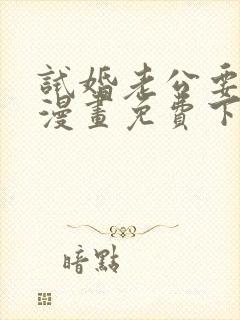 試婚老公要
漫畫免費下
暗點